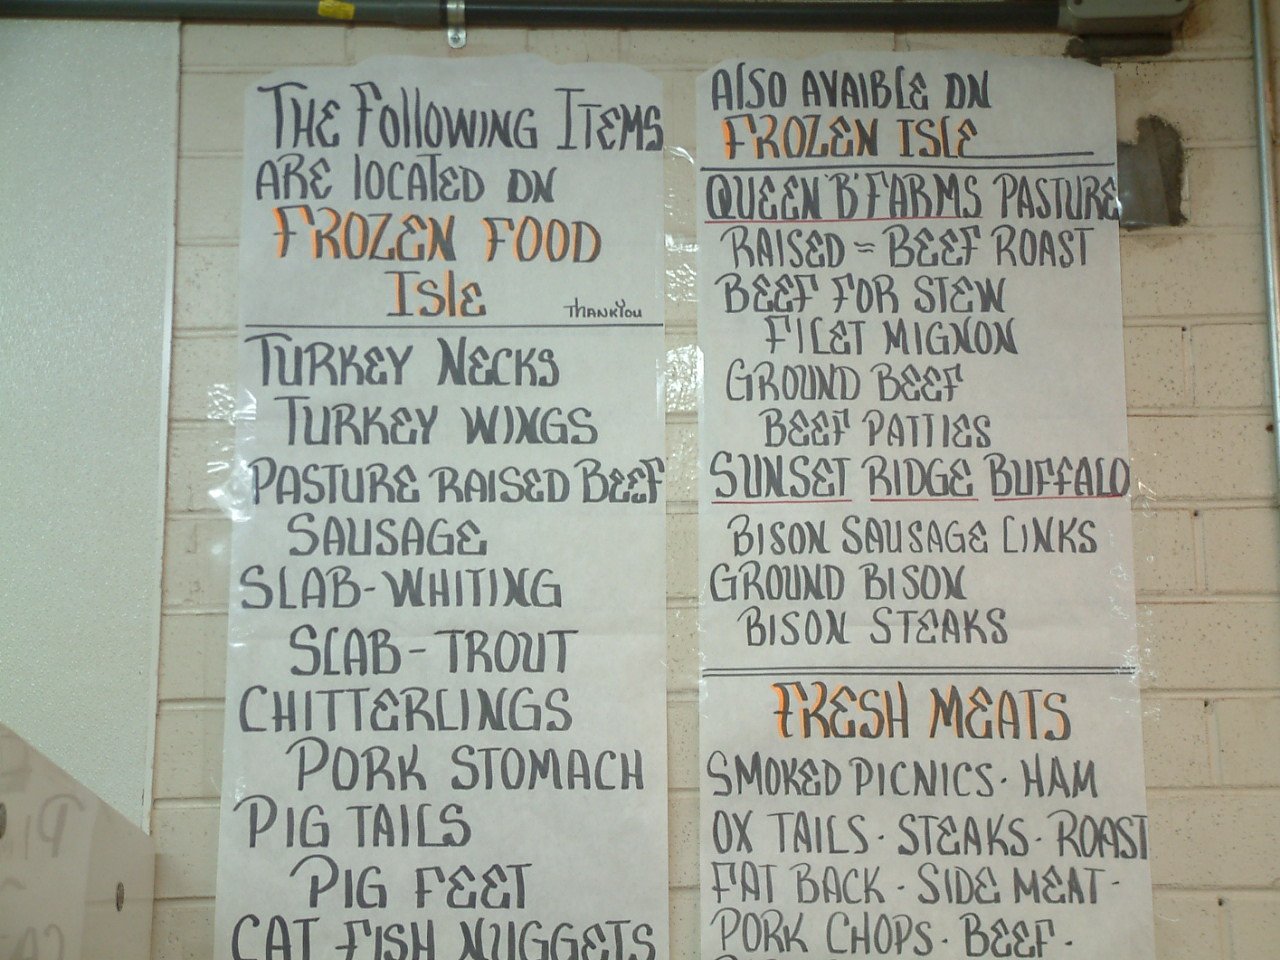 THE FOllOWING ITEMS
ARE lOCATED ON
FROZEN FOOD
IslE
THANKYOU
TURKEY NECKS
TURKEY WINGS
PASTURE RAISED BEEF
SAUSAGE
SLAB-WHITING
SLAB-TROUT
CHITTERLINGS
PORK STOMACH
PIG TAILS
PIG FEET
CAT FISH NUGGETS
AlSO AVAIBLE ON
FROZEN ISLE
QUEEN "B" FARMS PASTURE
RAISED = BEEF ROAST
BEEF FOR STEW
FILET MIGNON
GROUND BEEF
BEEF PATTIES
SUNSET RIDGE BUFFALO
BISON SAUSAGE LINKS
GROUND BISON
BISON STEAKS
FRESH MEATS
SMOKED PICNICS · HAM
OX TAILS · STEAKS · ROAST
FAT BACK · SIDE MEAT ·
PORK CHOPS · BEEF ·